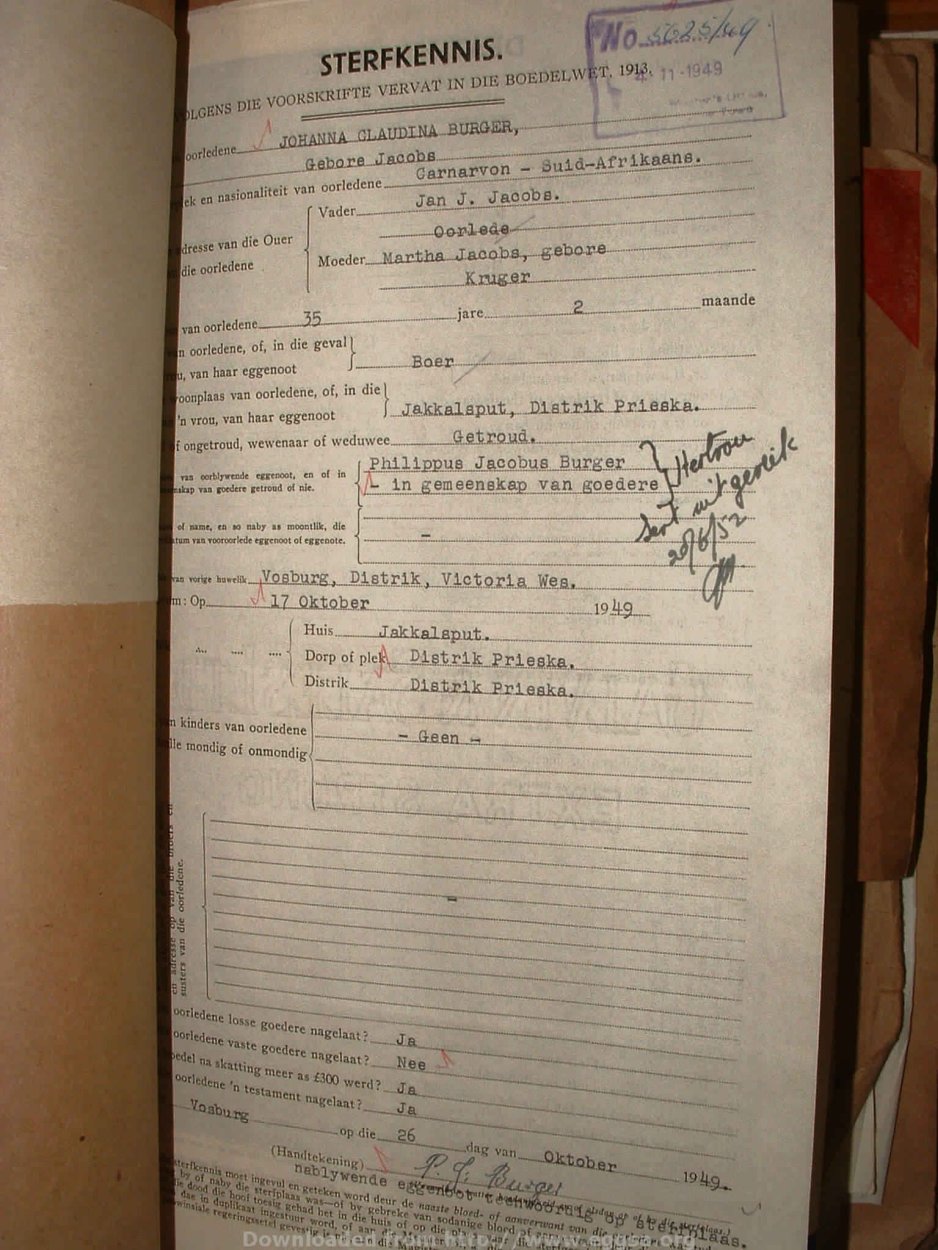 STERFKENNIS.
No. 5625/49
4-11-1949
VOLGENS DIE VOORSKRIFTE VERVAT IN DIE BOEDELWET, 1913.
oorledene JOHANNA CLAUDINA BURGER,
Gebore Jacobs
ek en nasionaliteit van oorledene Carnarvon - Suid-Afrikaans.
Vader Jan J. Jacobs.
dresse van die Ouer
Oorlede
die oorledene
Moeder Martha Jacobs, gebore
Kruger
van oorledene 35 jare 2 maande
n oorledene, of, in die geval
u, van haar eggenoot
Boer
woonplaas van oorledene, of, in die
'n vrou, van haar eggenoot
Jakkalsput, Distrik Prieska.
f ongetroud, wewenaar of weduwee Getroud.
van oorblywende eggenoot, en of in
nskap van goedere getroud of nie.
Philippus Jacobus Burger
- in gemeenskap van goedere
Hertrou
Sert uitgereik
20/6/52
of name, en so naby as moontlik, die
atum van vooroorlede eggenoot of eggenote.
-
van vorige huwelik Vosburg, Distrik, Victoria Wes.
m: Op 17 Oktober 1949
Huis Jakkalsput.
Dorp of plek Distrik Prieska.
Distrik Distrik Prieska.
n kinders van oorledene
lle mondig of onmondig
- Geen -
en adresse op van die broers en
susters van die oorledene.
-
oorledene losse goedere nagelaat? Ja
oorledene vaste goedere nagelaat? Nee
oedel na skatting meer as £300 werd? Ja
oorledene 'n testament nagelaat? Ja
Vosburg op die 26 dag van Oktober 1949.
(Handtekening) P. J. Burger
nablywende eggenoot teenwoordig op sterfplaas.
sterfkennis moet ingevul en geteken word deur de naaste bloed- of aanverwant van die
by of naby die sterfplaas was—of by gebreke van sodanige bloed
die dood die hoof toesig gehad het in die huis of op die
dae in duplikaat ingestuur word, of aan
winsiale regeringssetel gevestig is
Downloaded from http://www.eggsa.org